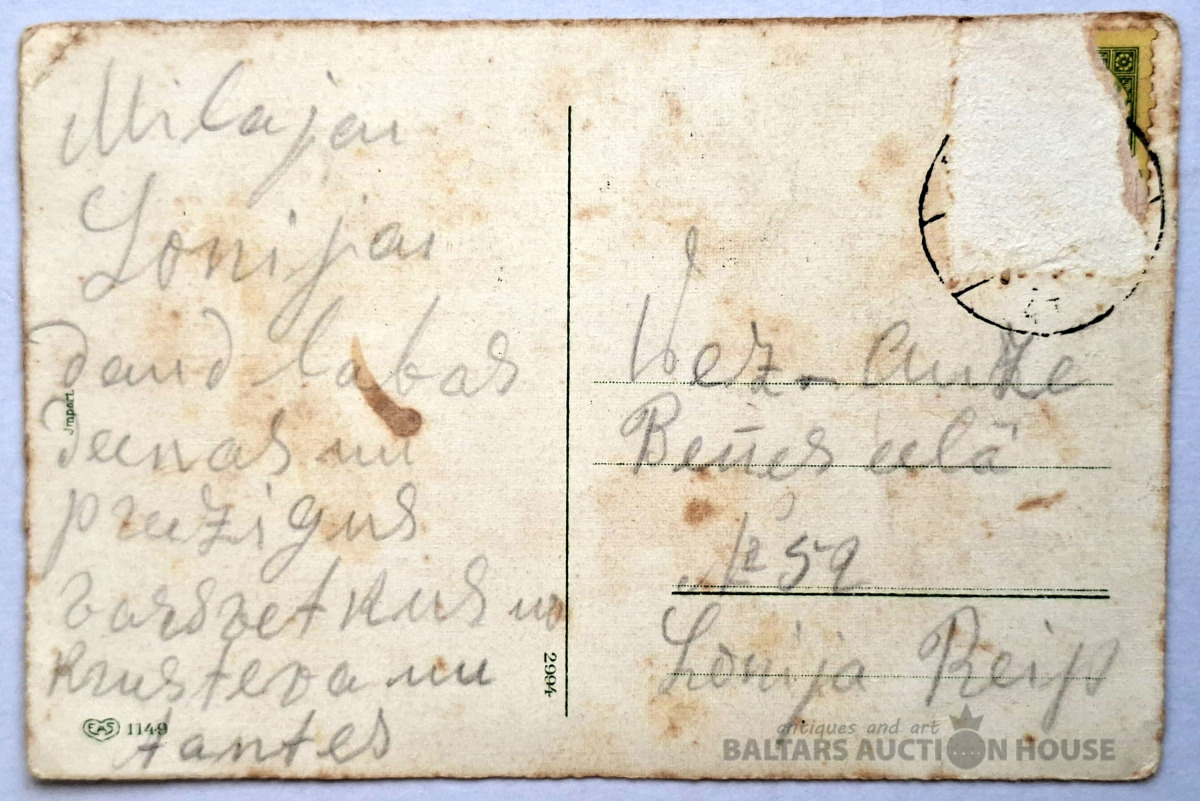 Milajai
Lonijai
daud labas
deenas un
preezigus
vassvetkus no
Krusteva un
tantes
Jmport
EAS 1149
2994
Wez-
Beenes eelā
№ 59
Lonija Reiß
antiques and art
BALTARS AUCTION HOUSE